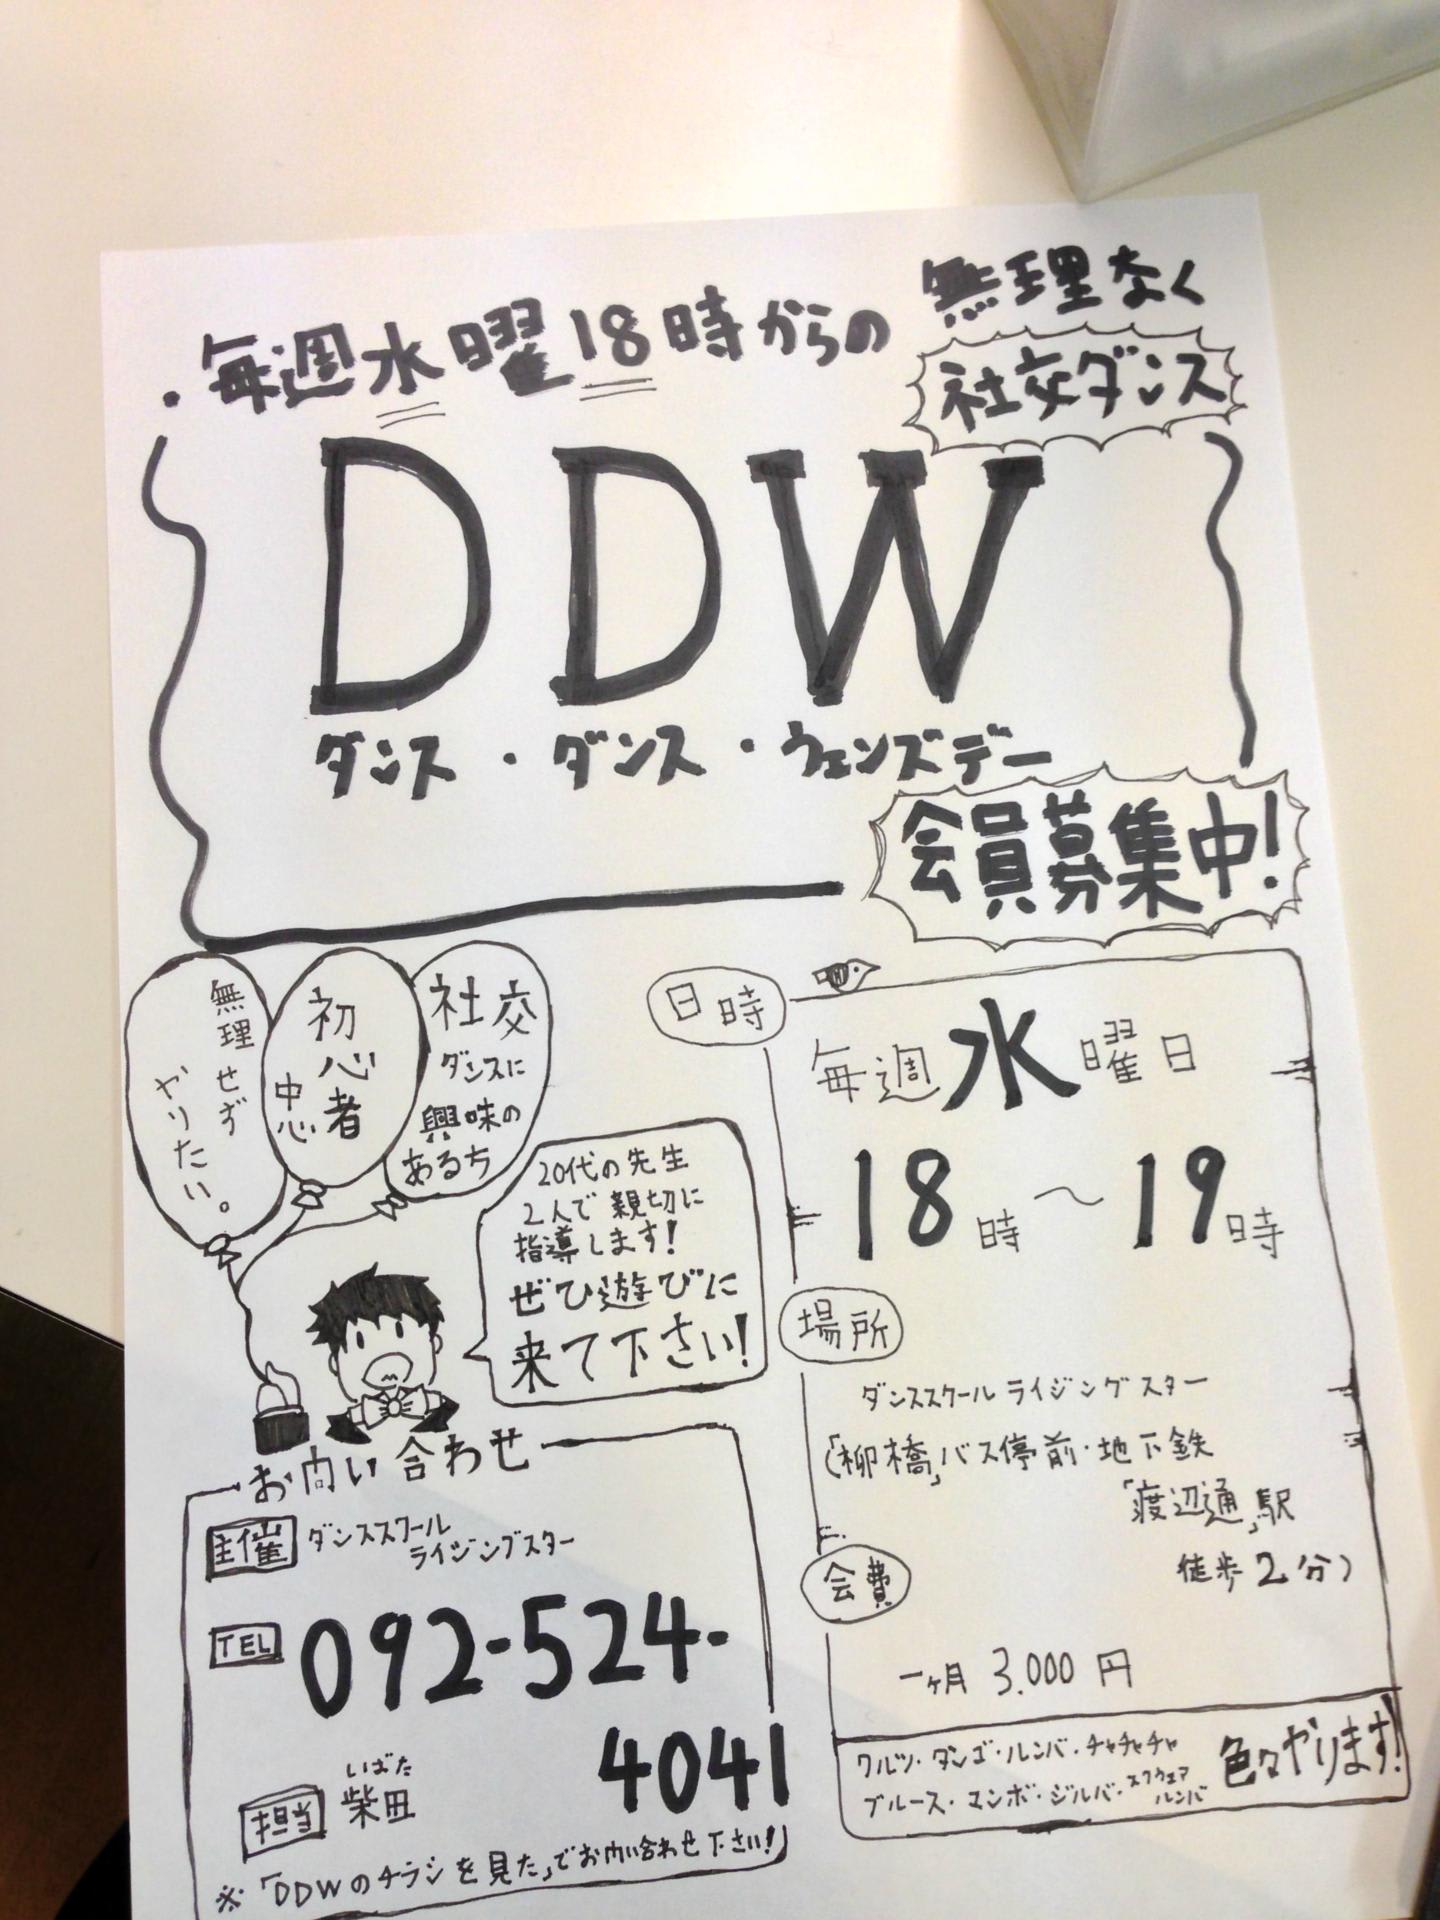 ・毎週水曜18時からの
無理なく
社交ダンス
DDW
ダンス・ダンス・ウェンズデー
会員募集中!
無理せず
やりたい。
初心者
中心
社交
ダンスに
興味の
ある方
20代の先生
2人で親切に
指導します!
ぜひ遊びに
来て下さい!
日時
毎週水曜日
18時〜19時
場所
ダンススクールライジングスター
(「柳橋」バス停前・地下鉄
「渡辺通」駅
徒歩2分)
会費
一ヶ月 3.000円
ワルツ・タンゴ・ルンバ・チャチャチャ
ブルース・マンボ・ジルバ・スクウェア
ルンバ
色々やります!
お問い合わせ
主催 ダンススクール
ライジングスター
TEL 092-524-
4041
いばた
担当 柴田
※「DDWのチラシを見た」でお問い合わせ下さい!